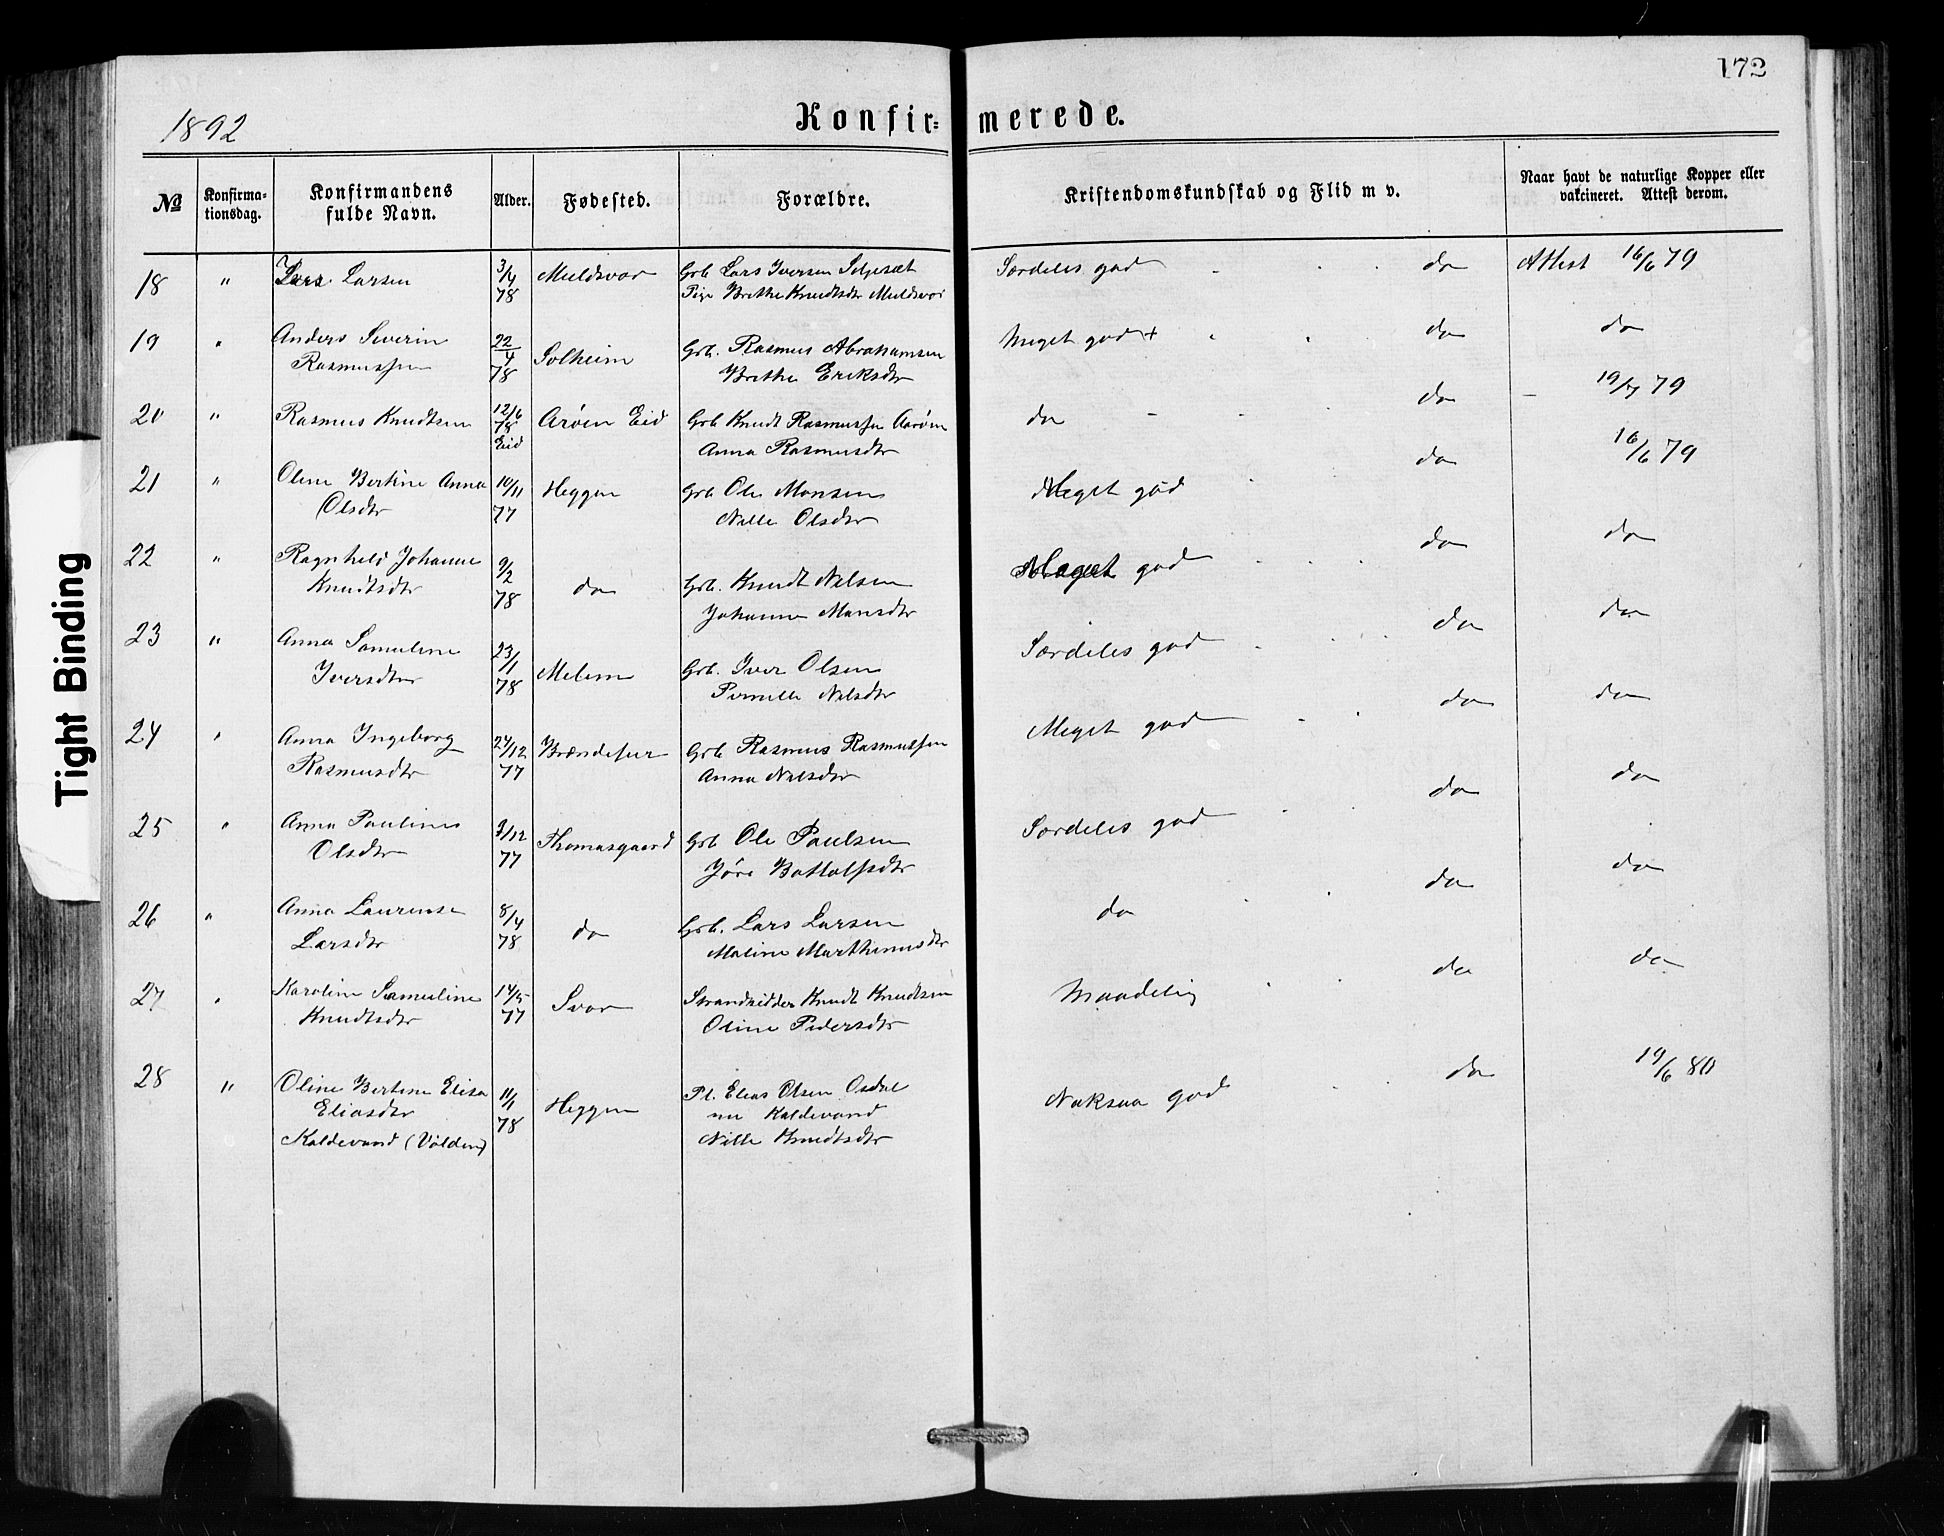 172
1892
Konfir= merede.
№ Konfirma-tionsdag. Konfirmandens fulde Navn. Alder. Fødested. Forældre. Kristendomskundskab og Flid m v. Naar havt de naturlige Kopper eller vakcineret. Attest derom.
18 " Larsen 3/4 78 Muldsvor Grb Lars Iversen Særdeles god do Attest 16/6 79
Pige Brithe Knudtsdtr Muldsvor
19 " Anders Severin 22/4 78 Solheim Grb. Rasmus Abrahamsen Meget god + do do
Rasmussen Brithe Eriksdtr
20 " Rasmus Knudtsen 12/6 78 Eid Arøen Eid Grb Knudt Rasmussen Aarøen do do - 19/7 79
Anna Rasmusdtr
21 " Oline Bertine Anna 10/11 77 Heggen Grb Ole Monsen Meget god do 16/6 79
Olsdtr Nille Olsdtr
22 " Ragnhild Johanne 9/2 78 do Grb. Knudt Nilsen Meget god do do
Knudtsdtr Johanne Monsdtr
23 " Anna Samuline 23/1 78 Melem Grb. Iver Olsen Særdeles god do do
Iversdtr Pernille Nilsdtr
24 " Anna Ingeborg 24/12 77 Grb Rasmus Rasmussen Meget god do do
Rasmusdtr Anna Nilsdtr
25 " Anna Pauline 9/12 77 Thomasgaard Grb Ole Paulsen Særdeles god do do
Olsdtr Botholfsdtr
26 " Anna Laurense 8/4 78 do Grb. Lars Larsen do do do
Larsdtr Maline Marthinusdtr
27 " Karoline Samuline 14/5 77 Svor Strandsidder Knudt Knudtsen Maadelig do do
Knudtsdtr Oline Pedersdtr
28 " Oline Bertine Elisa 11/1 78 Heggen Pl. Elias Olsen Osdal Noksaa god do 19/6 80
Eliasdtr nu Kaldevand
Kaldevand (Volden) Nille Knudtsdtr
Tight Binding